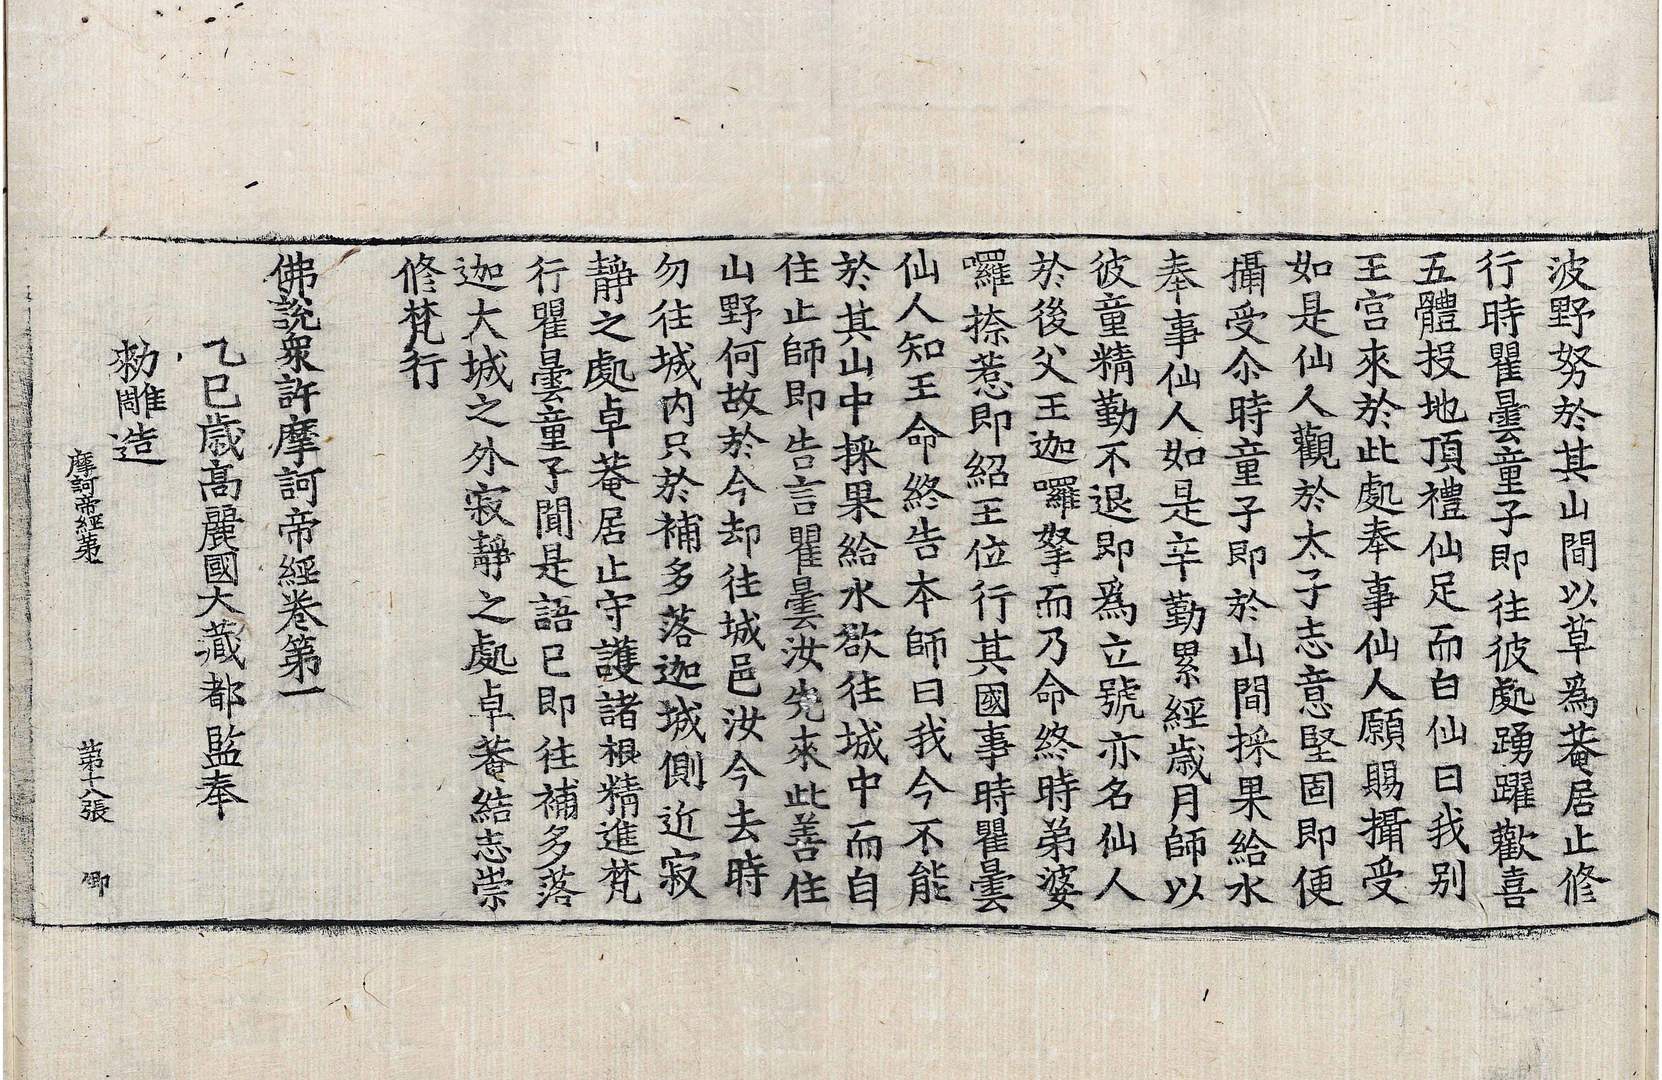 波野努於其山間以草爲菴居止修
行時瞿曇童子即往彼處踴躍歡喜
五體投地頂禮仙足而白仙曰我別
王宮來於此處奉事仙人願賜攝受
如是仙人觀於太子志意堅固即便
攝受尒時童子即於山間採果給水
奉事仙人如是辛勤累經歲月師以
彼童精勤不退即爲立號亦名仙人
於後父王迦囉拏而乃命終時弟婆
囉捺惹即紹王位行其國事時瞿曇
仙人知王命終告本師曰我今不能
於其山中採果給水欲往城中而自
住止師即告言瞿曇汝先來此善住
山野何故於今却往城邑汝今去時
勿往城内只於補多落迦城側近寂
靜之處卓菴居止守護諸根精進梵
行瞿曇童子聞是語已即往補多落
迦大城之外寂靜之處卓菴結志崇
修梵行
佛說衆許摩訶帝經卷第一
乙巳歲高麗國大藏都監奉
勑雕造
摩訶帝經第一 第十八張 卿